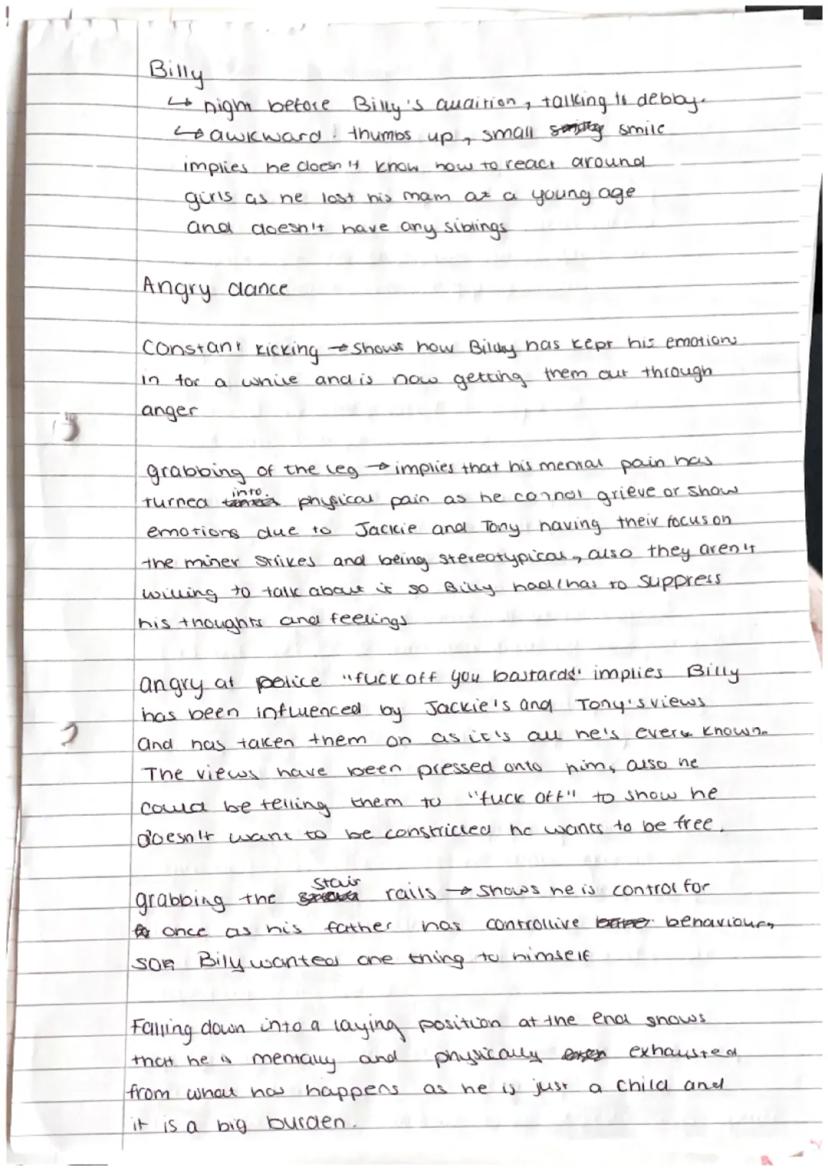 Billy
↳ night before Billy's audition, talking to debby.
↳ awkward thumbs up, small smile
implies he doesn't know how to react around
girls as he lost his mam at a young age
and doesn't have any siblings
Angry dance
Constant kicking → shows how Billy has kept his emotions
in for a while and is now getting them out through
anger
grabbing of the leg → implies that his mental pain has
turned into physical pain as he cannot grieve or show
emotions due to Jackie and Tony having their focus on
the miner strikes and being stereotypical, also they aren't
willing to talk about it so Billy had/has to suppress
his thoughts and feelings
angry at police "fuck off you bastards" implies Billy
has been influenced by Jackie's and Tony's views
and has taken them on as it's all he's ever known.
The views have been pressed onto him, also he
could be telling them to "fuck off" to show he
doesn't want to be constricted he wants to be free.
grabbing the stair rails → shows he is control for
once as his father has controllive behaviour,
so Billy wanted one thing to himself
Falling down into a laying position at the end shows
that he is mentally and physically exhausted
from what has happens as he is just a child and
it is a big burden.